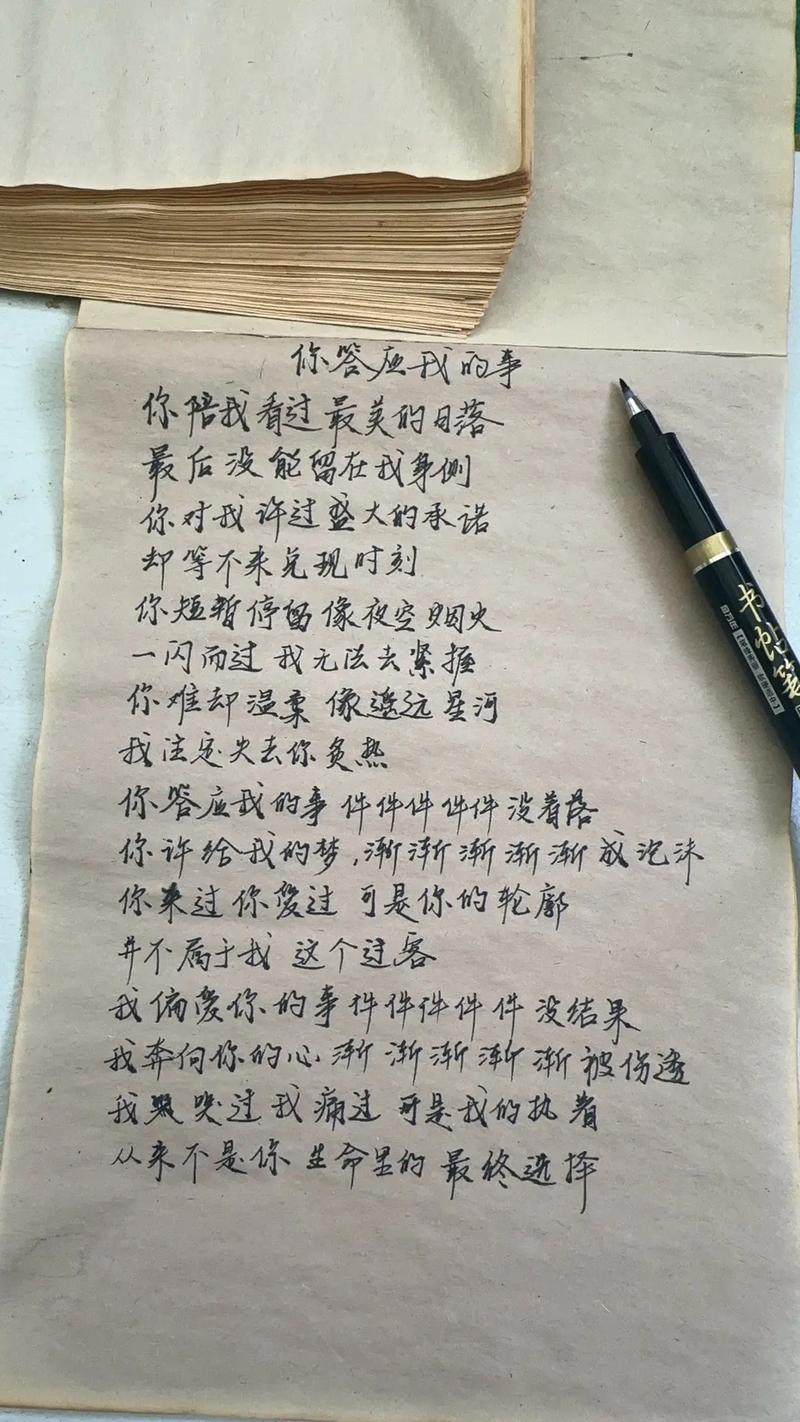 你答应我的事
你陪我看过最美的日落
最后没能留在我身侧
你对我许过盛大的承诺
却等不来兑现时刻
你短暂停留像夜空烟火
一闪而过 我无法去紧握
你难却温柔 像遥远星河
我注定失去你炙热
你答应我的事 件件件件件没着落
你许给我的梦,渐渐渐渐渐成泡沫
你来过你爱过 可是你的轮廓
并不属于我 这个过客
我偏爱你的事件件件件件没结果
我奔向你的心渐渐渐渐渐被伤透
我哭过我痛过 可是我的执着
从来不是你 生命里的最终选择
书帖笔